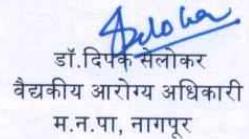 डॉ.दिपक सेलोकर
वैद्यकीय आरोग्य अधिकारी
म.न.पा, नागपूर